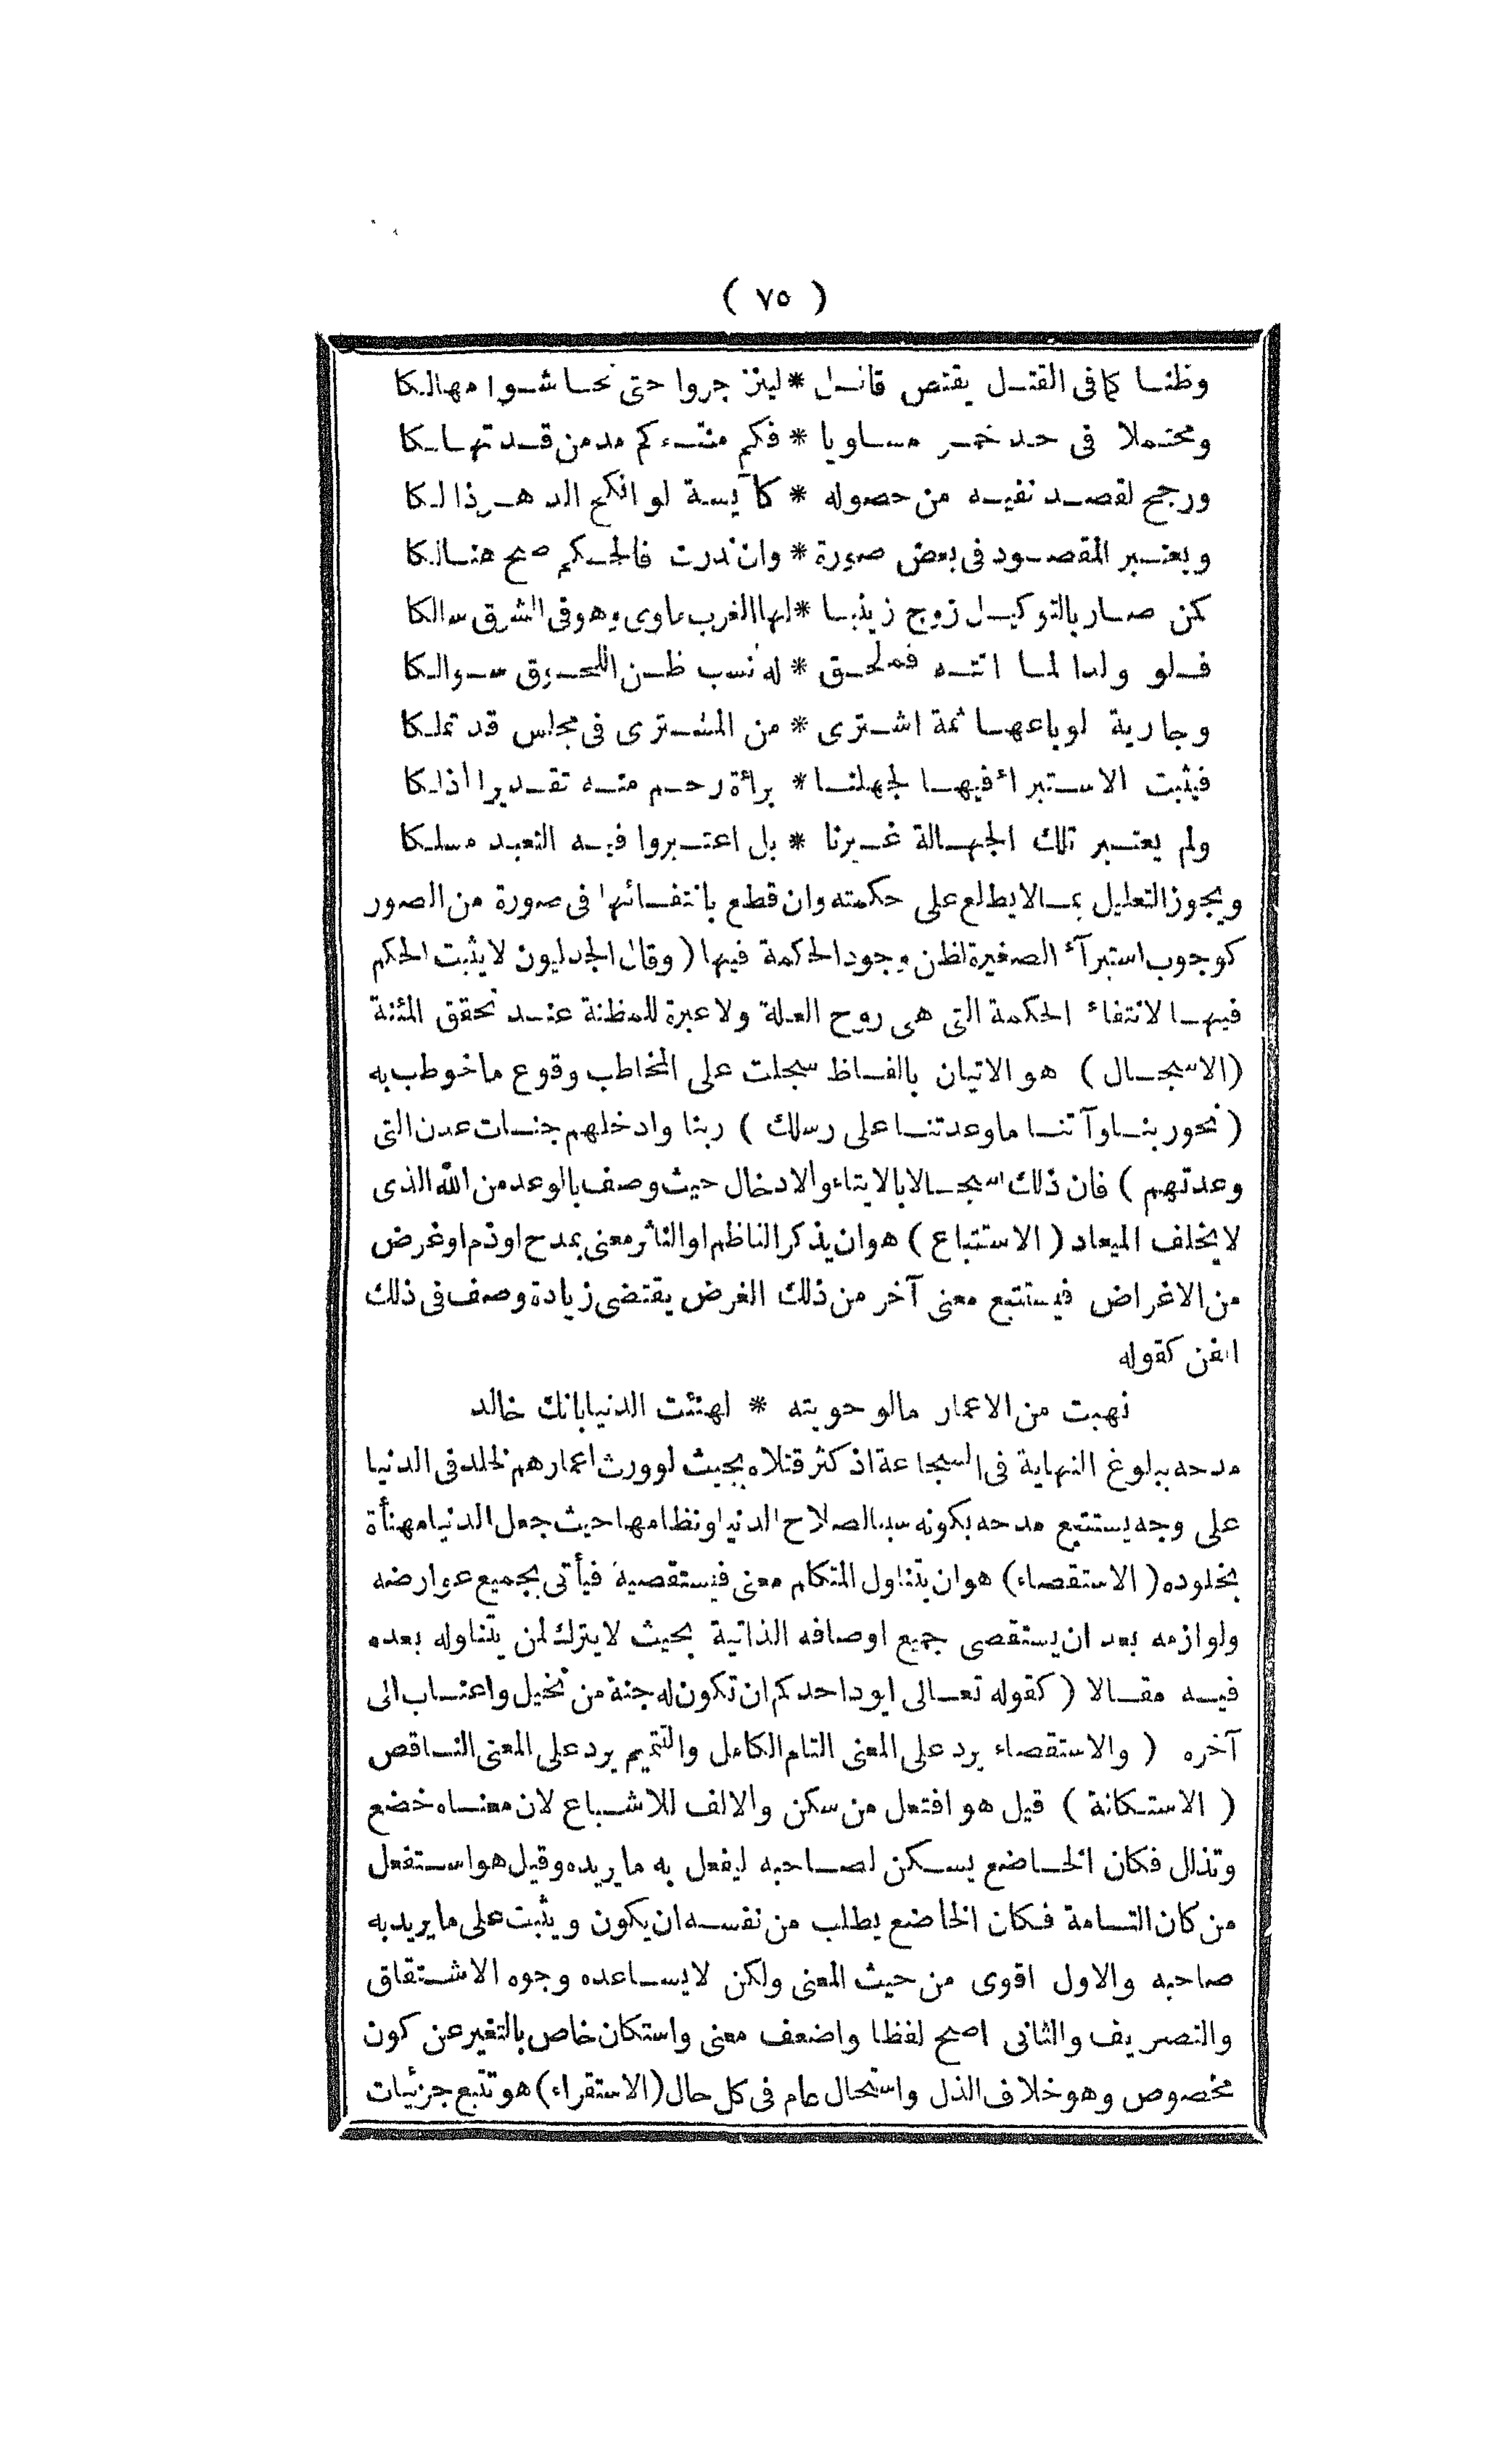 ( ٧٥ )
وظنا كما فى القتل يقتص قاتل * لينزجروا حتى تحاشوا مهالكا
ومحتملا فى حد خمر مساويا * فكم منته كم مدمن قد تهالكا
ورجح لقصد نفيه من حصوله * كآيسة لو انكح الدهر ذالكا
ويعتبر المقصود فى بعض صورة * وان ندرت فالحكم صح هنالكا
كمن صار بالتوكيل زوج زينبا * لها الغرب ماوى وهو فى الشرق سالكا
فلو ولدا لما اتته فملحق * له نسب ظن اللحوق سوالكا
وجارية لو باعها ثمة اشترى * من المشترى فى مجلس قد تملكا
فيثبت الاستبراء فيها لجهلنا * برائة رحم منه تقديرا اذلكا
ولم يعتبر تلك الجهالة غيرنا * بل اعتبروا فيه التعبد مسلكا
ويجوز التعليل بما لا يطلع على حكمته وان قطع بانتفائها فى صورة من الصور
كوجوب استبرآء الصغيرة لظن وجود الحكمة فيها ( وقال الجدليون لا يثبت الحكم
فيها لانتفاء الحكمة التى هى روح العلة ولا عبرة للمظنة عند تحقق المئنة
( الاسجال ) هو الاتيان بالفاظ سجلت على المخاطب وقوع ما خوطب به
( نحو ربنا وآتنا ما وعدتنا على رسلك ) ربنا وادخلهم جنات عدن التى
وعدتهم ) فان ذلك اسجالا بالايتاء والادخال حيث وصف بالوعد من الله الذى
لا يخلف الميعاد ( الاستتباع ) هو ان يذكر الناظم او الناثر معنى بمدح او ذم او غرض
من الاغراض فيستتبع معنى آخر من ذلك الغرض يقتضى زيادة وصف فى ذلك
الفن كقوله
نهبت من الاعمار مالو حويته * لهنئت الدنيا بانك خالد
مدحه ببلوغ النهاية فى الشجاعة اذ كثر قتلاه بحيث لو ورث اعمارهم لخلد فى الدنيا
على وجه يستتبع مدحه بكونه سببا لصلاح الدنيا ونظامها حيث جعل الدنيا مهنأة
بخلوده ( الاستقصاء ) هو ان يتناول المتكلم معنى فيستقصيه فيأتى بجميع عوارضه
ولوازمه بعد ان يستقصى جميع اوصافه الذاتية بحيث لا يترك لمن يتناوله بعده
فيه مقالا ( كقوله تعالى ايود احدكم ان تكون له جنة من نخيل واعناب الى
آخره ( والاستقصاء يرد على المعنى التام الكامل والتتميم يرد على المعنى الناقص
( الاستكانة ) قيل هو افتعل من سكن والالف للاشباع لان معناه خضع
وتذلل فكان الخاضع يسكن لصاحبه ليفعل به ما يريده وقيل هو استفعل
من كان التامة فكان الخاضع يطلب من نفسه ان يكون ويثبت على ما يريد به
صاحبه والاول اقوى من حيث المعنى ولكن لا يساعده وجوه الاشتقاق
والتصريف والثانى اصح لفظا واضعف معنى واستكان خاص بالتغير عن كون
مخصوص وهو خلاف الذل واستحال عام فى كل حال ( الاستقراء ) هو تتبع جزئيات